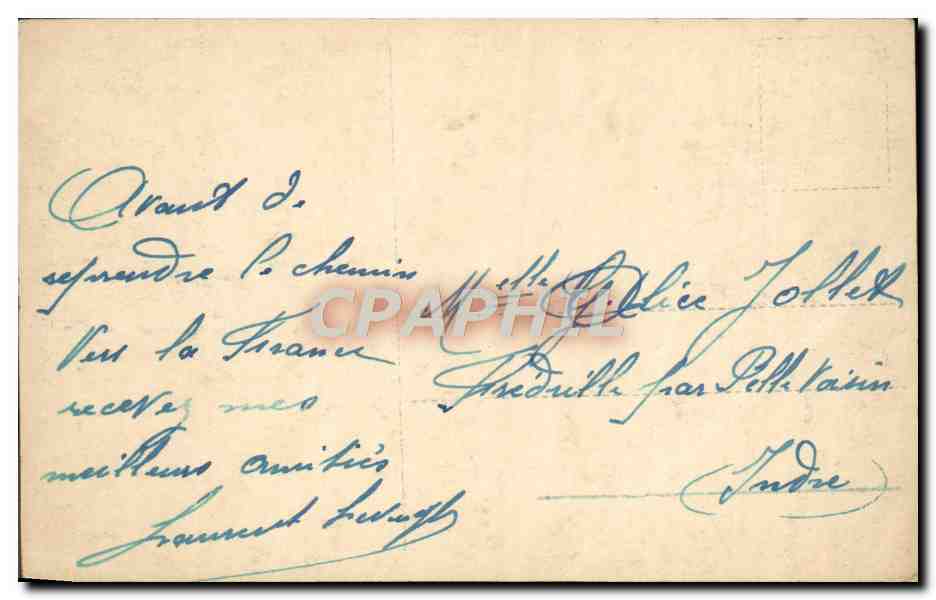 Avant de
reprendre le chemin
vers la France
recevez mes
meilleurs amitiés
Laurent
Melle Alice Jollet
Frédrille par Pellevoisin
(Indre)
CPAPHIL